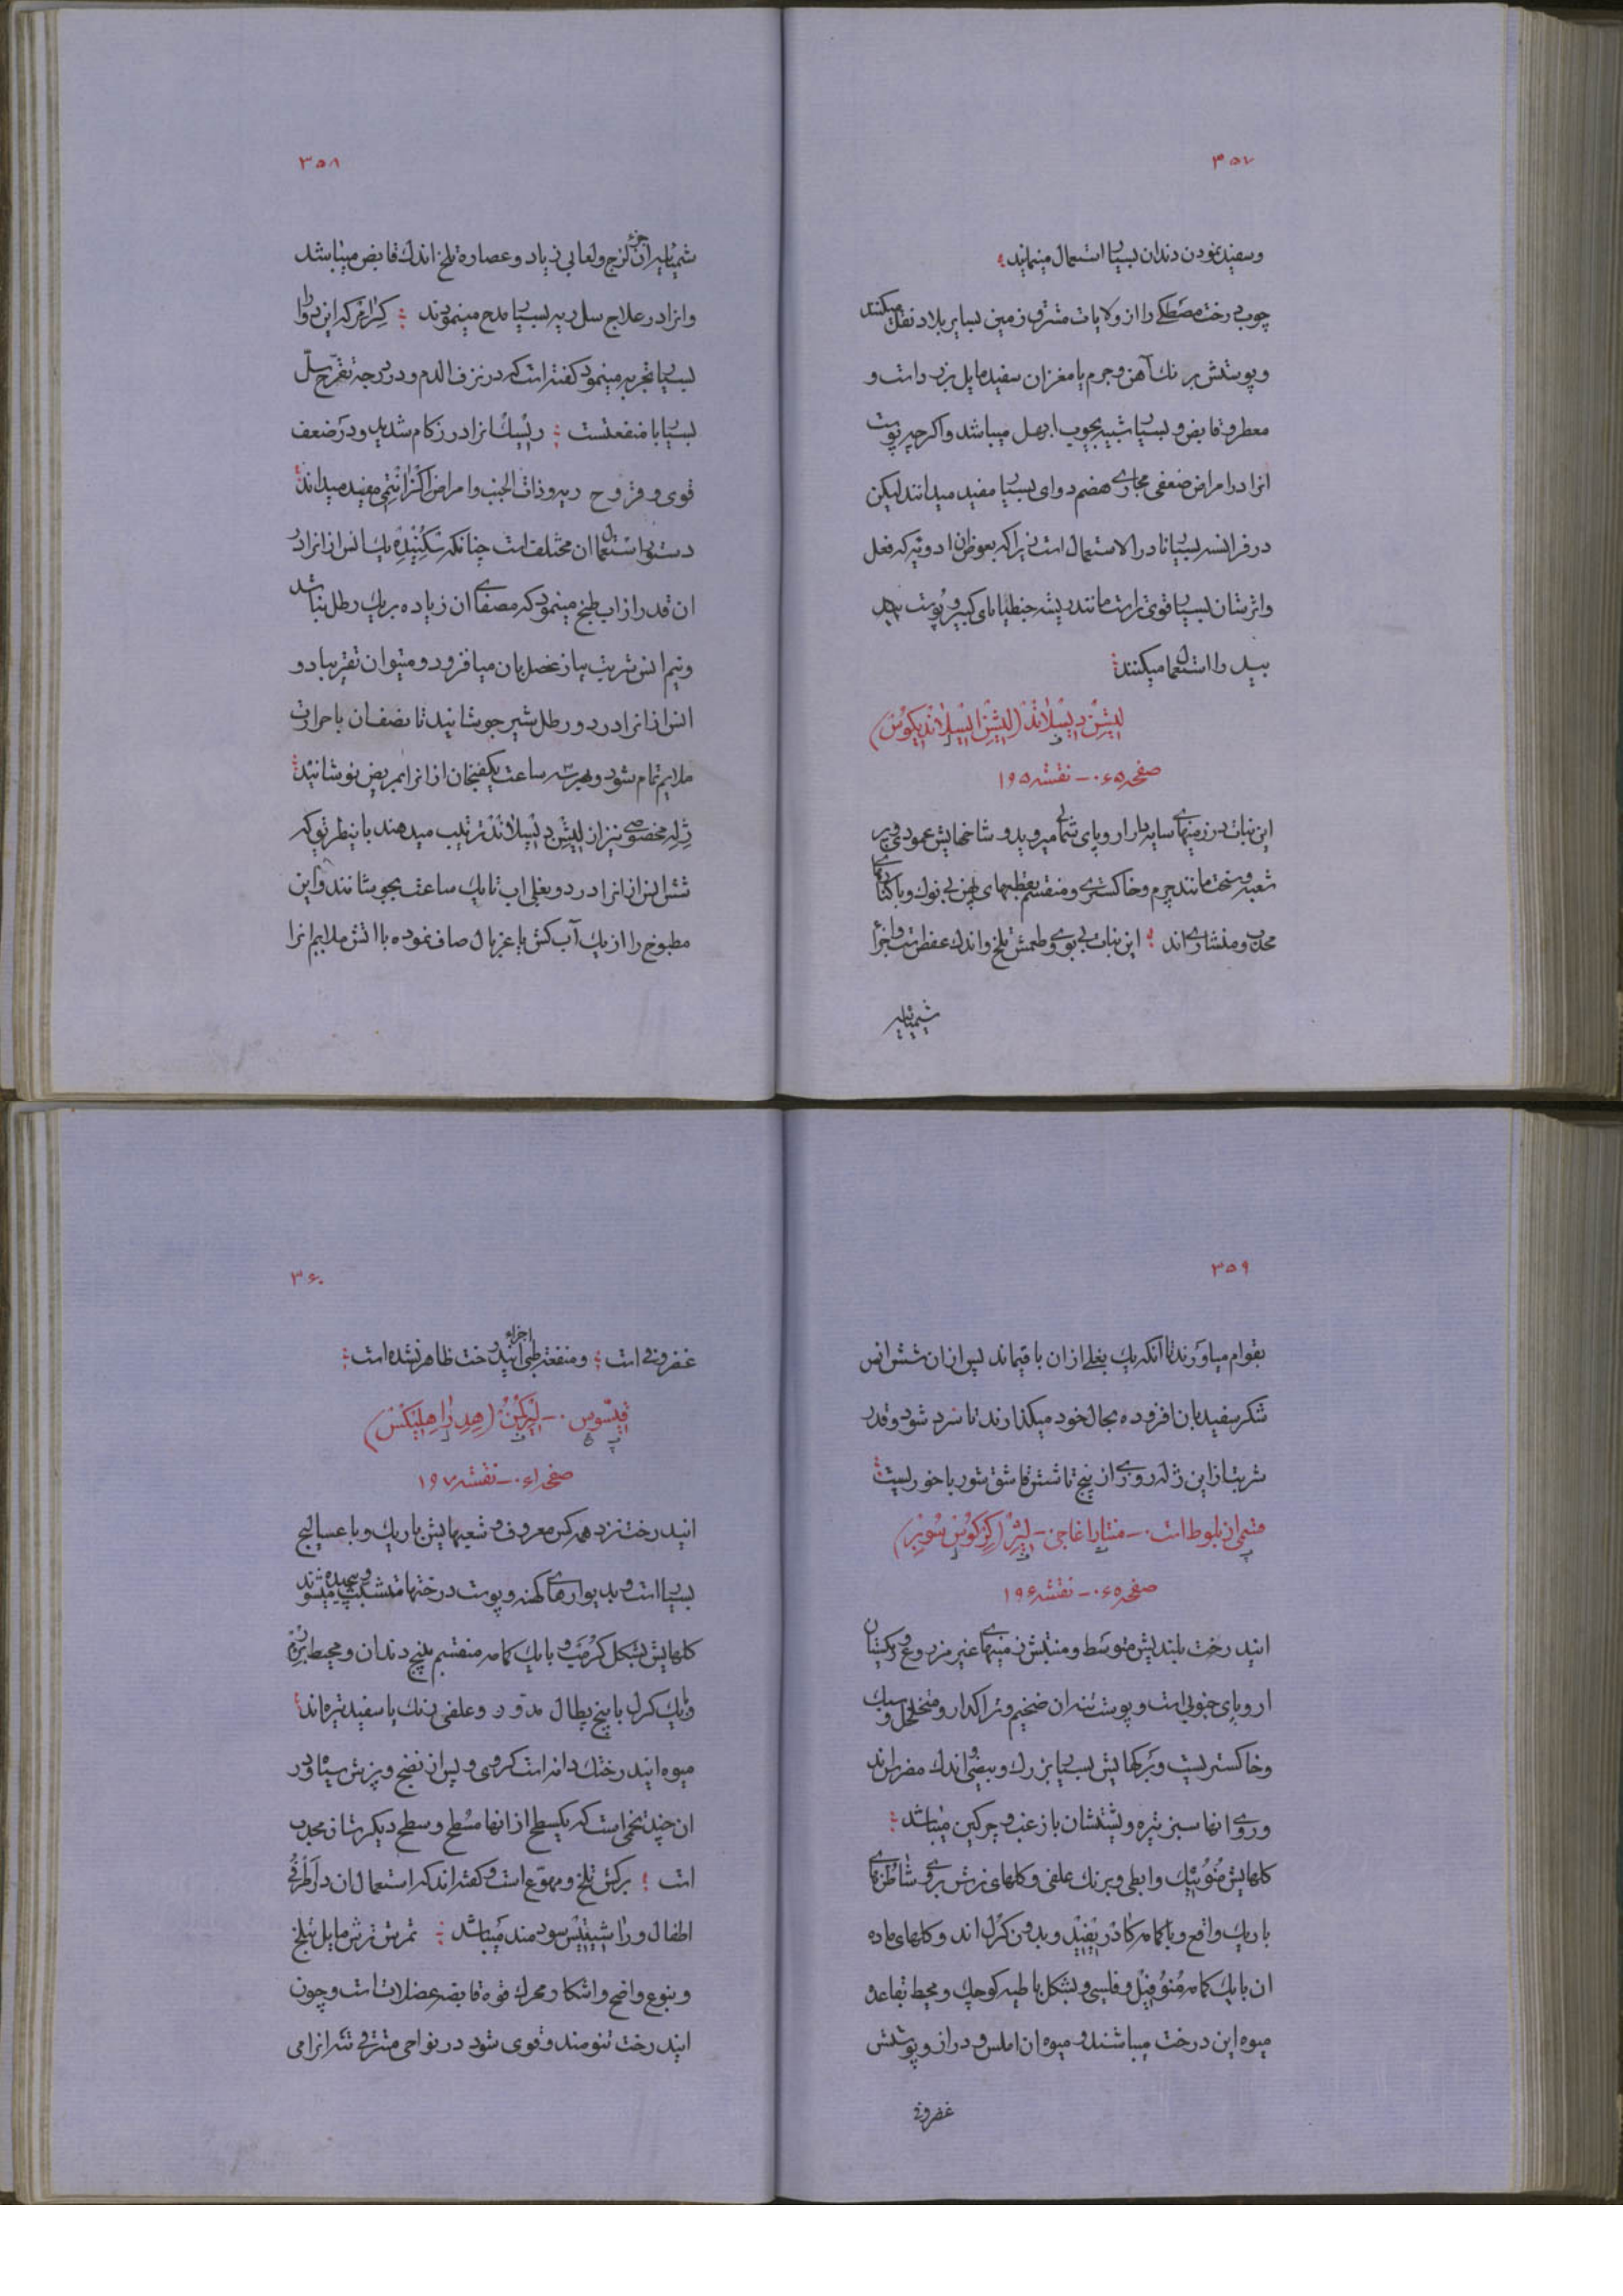 ۳۵۷
وسفید نمودن دندان بسیار استعمال مینمایند
چوب درخت مصطکی را از ولایات مشرق زمین بسایر بلاد نقل میکنند
و پوستش برنك آهن و جرم یا مغز ان سفید مایل بزرد است و
معطر و قابض و بسیار شبیه بچوب ابهل میباشد و اکرچه پوست
انرا در امراض ضعفی مجاری هضم دوای بسیار مفید میدانند لیکن
در فرانسه بسیار نادر الاستعمال است زیرا که بعوض ان ادویه که فعل
واثرشان بسیار قوی تر است مانند ریشه جنطیانای کبیر و پوست
بید را استعمال میکنند
لیشن دیسلاند (لیشن ایسلاندیکوس)
صفحه ۶۵ - نقشه ۱۹۵
این نبات در زمینهای سایه دار اروپای شمالی میروید و شاخهایش عمودی و پر
شعبه و سخت مانند چرم و خاکستری و منقسم بقطعهای پهن بی نوك و با کنارهای
محدب و منشاری اند این نبات بی بوی و طعمش تلخ و اندك عفص است و اجزاء
شیمیائیه
۳۵۸
شیمیائیه ان جزء لزج و لعابی زیاد و عصاره تلخ اندك قابض میباشد
وانرا در علاج سل ریه بسیار مدح مینمودند کرامر که این دوا را
بسیار تجربه مینمود کفته است که در نزف الدم و در درجه تقرح سل
بسیار با منفعتست ریسك انرا در زکام شدید و در ضعف
قوی و قروح ریه و ذات الجنب و امراض اکزانتمی مفید میداند
دستور استعمال ان مختلف است چنانکه یك انس از انرا در
ان قدر از اب طبخ مینمود که مصفای ان زیاده بر یك رطل نباشد
و نیم انس شربت پیاز عنصل بان میافزود و میتوان تقریبا دو
انس از انرا در دو رطل شیر جوشانید تا نصف ان با حرارت
ملایم تمام شود و بهر سه ساعت یکفنجان از انرا بمریض نوشانید
ژله مخصوصی نیز از لیشن دیسلاند ترتیب میدهند باینطریق که
شش انس از انرا در دو بغلی اب تا یك ساعت بجوشانند و این
مطبوخ را از یك آب کش یا غربال صاف نموده با اتش ملایم انرا
۳۵۹
بقوام میاورند تا انکه یك بغلی از ان باقیماند پس از ان شش انس
شکر سفید بان افزوده بحال خود میکذارند تا سرد شود و قدر
شربت از این ژله روزی از پنج تا شش قاشق شوربا خوریست
قسمی از بلوط است - منتار اغاجی - لیژ (کرکوس سوبر)
صفحه ۶۵ - نقشه ۱۹۶
ایندرخت بلندیش متوسط و منبتش زمینهای غیر مزروع و ریکستان
اروپای جنوبی است و پوست تنه ان ضخیم و تراکدار و متخلخل و سبك
و خاکستریست و برکهایش بسیار بزرك و بیضی و اندك مضرس اند
و روی انها سبز تیره و پشتشان با زغب و چرکین میباشد
کلهایش منوئیك و ابطی و برنك علفی و کلهای نرش بر روی شاطنهای
باریك واقع و با کاسه و بدون کرل اند و کلهای ماده
ان با یك کاسه منوفیل و فلسی و بشکل باطیه کوچك و محیط بقاعده
میوه این درخت میباشند و میوه ان املس و دراز و پوستش
غضروفی
۳۶۰
غضروفی است و منفعت طبی اجزاء ایندرخت ظاهر نشده است
قیسوس - لیرکن (هدرا هلیکس)
صفحه ۶۱ - نقشه ۱۹۷
ایندرخت نزد همه کس معروف و شعبهایش باریك و با عسالیج
بسیار است و بدیوارهای کهنه و پوست درختها متشبث و پیچیده میشوند
کلهایش بشکل کرمب و با یك کاسه منقسم بپنج دندان و محیط بزهره
و یك کرل با پنج پطال مدور و علفی رنك یا سفید تیره اند
میوه ایندرختك دانه است کروی و پس از نضج و پزش سیاه و در
ان چند تخمی است که یکسطح از انها مسطح و سطح دیکرشان محدب
است برکش تلخ و مهوع است و کفته اند که استعمال ان در اطرفی
اطفال و راشیتیس سودمند میباشد ثمرش ترش مایل بتلخ
و بنوع واضح و اشکار محرك قوه قابضه عضلات است و چون
ایندرخت تنومند و قوی شود در نواحی مشرقی تنه انرا می